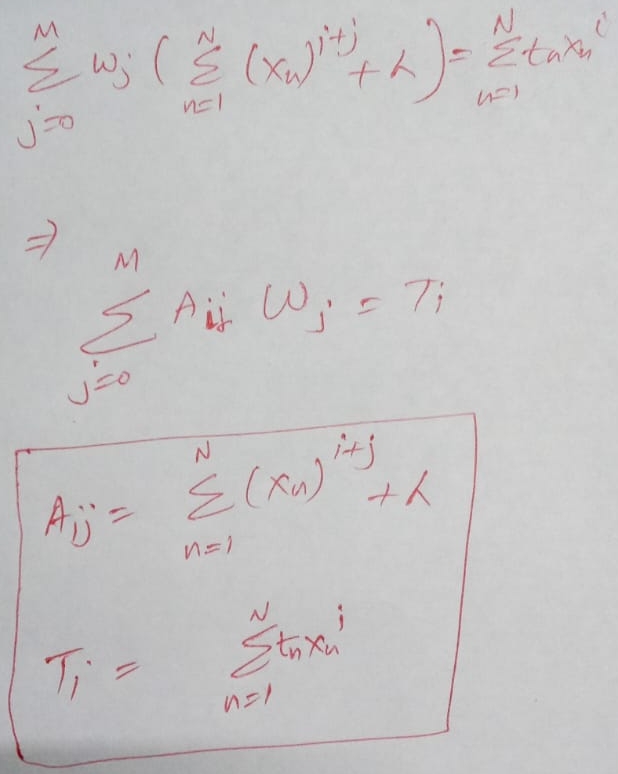 ∑_{j=0}^{M} w_j ( ∑_{n=1}^{N} (x_n)^{i+j} + λ ) = ∑_{n=1}^{N} t_n x_n^i
⇒
∑_{j=0}^{M} A_{ij} w_j = T_i
A_{ij} = ∑_{n=1}^{N} (x_n)^{i+j} + λ
T_i = ∑_{n=1}^{N} t_n x_n^i